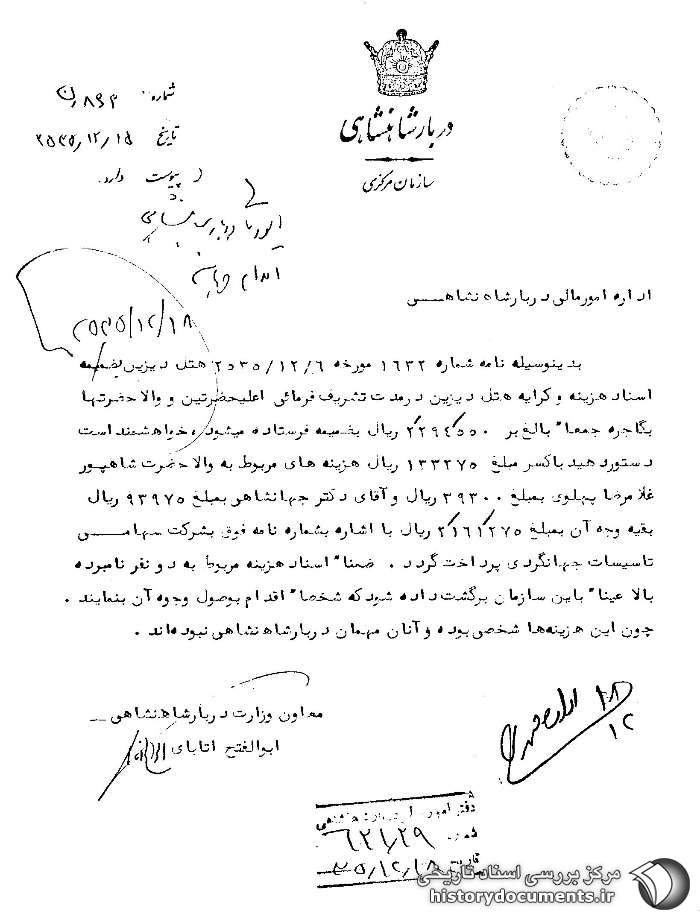 دربار شاهنشاهی
سازمان مرکزی
شماره
تاریخ ۲۵۳۵/۱۲/۱۵
پیوست دارد.
۲۵۳۵/۱۲/۱۸
اداره امور مالی دربار شاهنشاهی
بدینوسیله نامه شماره ۱۶۳۲ مورخه ۲۵۳۵/۱۲/۶ هتل دیزین بضمیمه
اسناد هزینه و کرایه هتل دیزین در مدت تشریف فرمائی اعلیحضرتین و والاحضرتها
بگاجره جمعا" بالغ بر ۲٬۲۹۴٬۵۵۰ ریال بضمیمه فرستاده میشود، خواهشمند است
دستور دهید با کسر مبلغ ۱۳۳۲۷۵ ریال هزینه های مربوط به والاحضرت شاهپور
غلامرضا پهلوی بمبلغ ۳۹۳۰۰ ریال و آقای دکتر جهانشاهی بمبلغ ۹۳۹۷۵ ریال
بقیه وجه آن بمبلغ ۲٬۱۶۱٬۲۷۵ ریال با اشاره بشماره نامه فوق بشرکت سهامی
تاسیسات جهانگردی پرداخت گردد. ضمنا" اسناد هزینه مربوط به دو نفر نامبرده
بالا عینا" باین سازمان برگشت داده شود که شخصا" اقدام بوصول وجوه آن بنمایند.
چون این هزینه‌ها شخصی بوده و آنان مهمان دربار شاهنشاهی نبوده‌اند.
معاون وزارت دربار شاهنشاهی
ابوالفتح اتابای
۱۸
۱۲
دفتر امور
شماره ۶۲۱۲۹
۳۵/۱۲/۱۸
مرکز بررسی اسناد تاریخی
historydocuments.ir